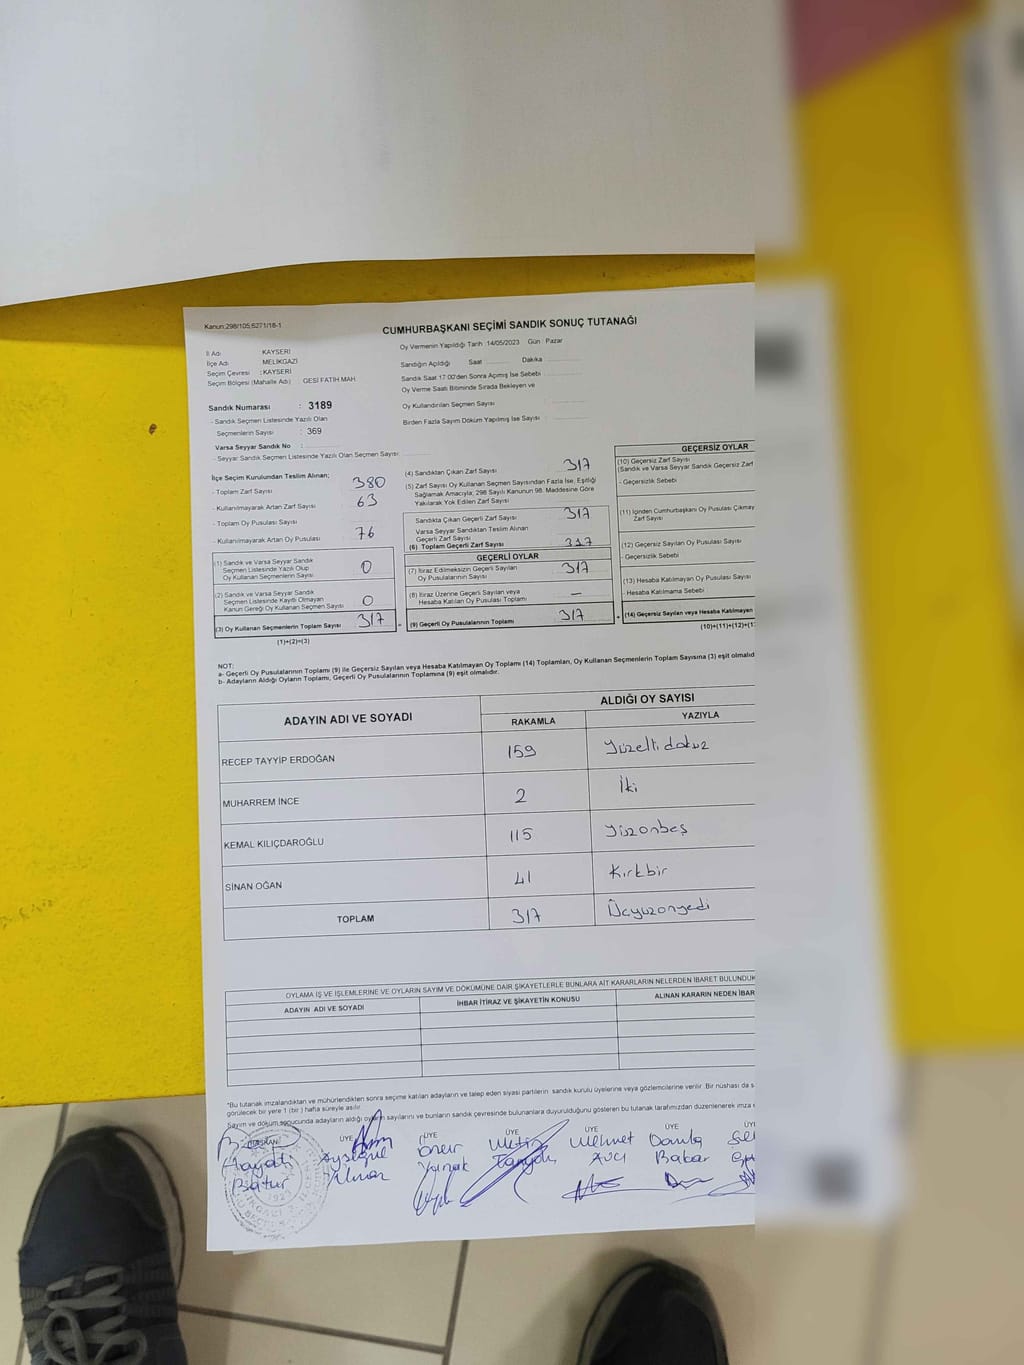 Kanun:298/105;6271/18-1
CUMHURBAŞKANI SEÇİMİ SANDIK SONUÇ TUTANAĞI
İl Adı KAYSERİ
İlçe Adı MELİKGAZİ
Seçim Çevresi : KAYSERİ
Seçim Bölgesi (Mahalle Adı) GESİ FATİH MAH.
Sandık Numarası : 3189
- Sandık Seçmen Listesinde Yazılı Olan
Seçmenlerin Sayısı : 369
Varsa Seyyar Sandık No :
- Seyyar Sandık Seçmen Listesinde Yazılı Olan Seçmen Sayısı
Oy Vermenin Yapıldığı Tarih :14/05/2023 Gün : Pazar
Sandığın Açıldığı Saat Dakika
Sandık Saat 17:00'den Sonra Açımış İse Sebebi
Oy Verme Saati Bitiminde Sırada Bekleyen ve
Oy Kullandırılan Seçmen Sayısı
Birden Fazla Sayım Döküm Yapılmış İse Sayısı
İlçe Seçim Kurulundan Teslim Alınan;
- Toplam Zarf Sayısı 380
- Kullanılmayarak Artan Zarf Sayısı 63
- Toplam Oy Pusulası Sayısı
- Kullanılmayarak Artan Oy Pusulası 76
(1) Sandık ve Varsa Seyyar Sandık
Seçmen Listesinde Yazılı Olup
Oy Kullanan Seçmenlerin Sayısı 0
(2) Sandık ve Varsa Seyyar Sandık
Seçmen Listesinde Kayıtlı Olmayan
Kanun Gereği Oy Kullanan Seçmen Sayısı 0
(3) Oy Kullanan Seçmenlerin Toplam Sayısı 317
(1)+(2)=(3)
(4) Sandıktan Çıkan Zarf Sayısı 317
(5) Zarf Sayısı Oy Kullanan Seçmen Sayısından Fazla İse, Eşitliği
Sağlamak Amacıyla; 298 Sayılı Kanunun 98. Maddesine Göre
Yakılarak Yok Edilen Zarf Sayısı
Sandıkta Çıkan Geçerli Zarf Sayısı 317
Varsa Seyyar Sandıktan Teslim Alınan
Geçerli Zarf Sayısı
(6) Toplam Geçerli Zarf Sayısı 317
GEÇERLİ OYLAR
(7) İtiraz Edilmeksizin Geçerli Sayılan
Oy Pusulasının Sayısı 317
(8) İtiraz Üzerine Geçerli Sayılan veya
Hesaba Katılan Oy Pusulası Toplamı –
(9) Geçerli Oy Pusulalarının Toplamı 317
GEÇERSİZ OYLAR
(10) Geçersiz Zarf Sayısı
(Sandık ve Varsa Seyyar Sandık Geçersiz Zarf
- Geçersizlik Sebebi
(11) İçinden Cumhurbaşkanı Oy Pusulası
Zarf Sayısı
(12) Geçersiz Sayılan Oy Pusulası Sayısı
- Geçersizlik Sebebi
(13) Hesaba Katılmayan Oy Pusulası Sayısı
- Hesaba Katılmama Sebebi
(14) Geçersiz Sayılan veya Hesaba Katılmayan
(10)+(11)+(12)+(1
NOT:
a- Geçerli Oy Pusulalarının Toplamı (9) ile Geçersiz Sayılan veya Hesaba Katılmayan Oy Toplamı (14) Toplamları, Oy Kullanan Seçmenlerin Toplam Sayısına (3) eşit olmalıd
b- Adayların Aldığı Oyların Toplamı, Geçerli Oy Pusulalarının Toplamına (9) eşit olmalıdır.
ADAYIN ADI VE SOYADI ALDIĞI OY SAYISI
RAKAMLA YAZIYLA
RECEP TAYYİP ERDOĞAN 159 Yüzelli dokuz
MUHARREM İNCE 2 İki
KEMAL KILIÇDAROĞLU 115 Yüzonbeş
SİNAN OĞAN 41 Kırkbir
TOPLAM 317 Üçyüzonyedi
OYLAMA İŞ VE İŞLEMLERİNE VE OYLARIN SAYIM VE DÖKÜMÜNE DAİR ŞİKAYETLERLE BUNLARA AİT KARARLARIN NELERDEN İBARET BULUNDUK
ADAYIN ADI VE SOYADI İHBAR İTİRAZ VE ŞİKAYETİN KONUSU ALINAN KARARIN NEDEN İBAR
*Bu tutanak imzalandıktan ve mühürlendikten sonra seçime katılan adayların ve talep eden siyasi partilerin sandık kurulu üyelerine veya gözlemcilerine verilir. Bir nüshası da s
görülecek bir yere 1 (bir ) hafta süreyle asılır.
Sayım ve döküm sonucunda adayların aldığı oyların sayılarını ve bunların sandık çevresinde bulunanlara duyurulduğunu gösteren bu tutanak tarafımızdan düzenlenerek imza
BAŞKAN ÜYE ÜYE ÜYE ÜYE ÜYE ÜY
Hayati Ayşegül Öner Metin Mehmet Damla
Batur Yılmaz Avcı Babar